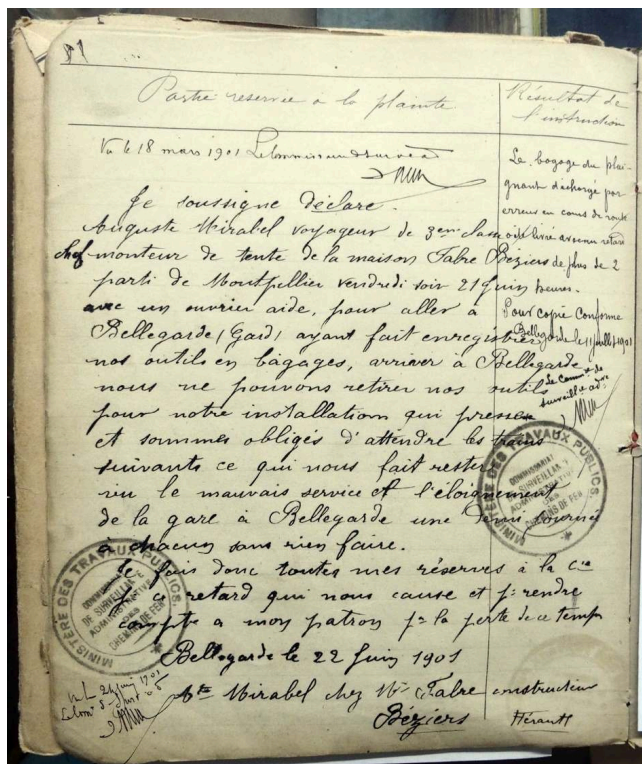 81
Partie réservée à la plainte
Résultat de
l'instruction
Vu le 18 mars 1901 Le
Je soussigné déclare.
Auguste Mirabel voyageur de 3eme classe
chef monteur de tente de la maison Fabre Béziers
parti de Montpellier vendredi soir 21 Juin
avec un ouvrier aide, pour aller à
Bellegarde (Gard) ayant fait enregistrer
nos outils en bagages, arriver à Bellegarde
nous ne pouvons retirer nos outils
pour notre installation qui presse
et sommes obligés d'attendre les trains
suivants ce qui nous fait rester
vu le mauvais service et l'éloignement
de la gare à Bellegarde une demi journée
à chacun sans rien faire.
Je fais donc toutes mes réserves à la Cie
ce retard qui nous cause et pr rendre
compte a mon patron pr la perte de ce temps
Bellegarde le 22 Juin 1901
Ate Mirabel chez Mr Fabre constructeur
Béziers Hérault
Le bagage du plai-
gnant déchargé par
erreur en cours de route
a été livré avec un retard
de plus de 2
heures.
Pour copie conforme
Bellegarde le 11 juillet 1901
Le Commre de
surveillce adve
MINISTÈRE DES TRAVAUX PUBLICS.
COMMISSARIAT
DE SURVEILLANCE
ADMINISTRATIVE
DES
CHEMINS DE FER
MINISTÈRE DES TRAVAUX PUBLICS.
COMMISSARIAT
DE SURVEILLANCE
ADMINISTRATIVE
DES
CHEMINS DE FER
Vu L 24 juin 1901